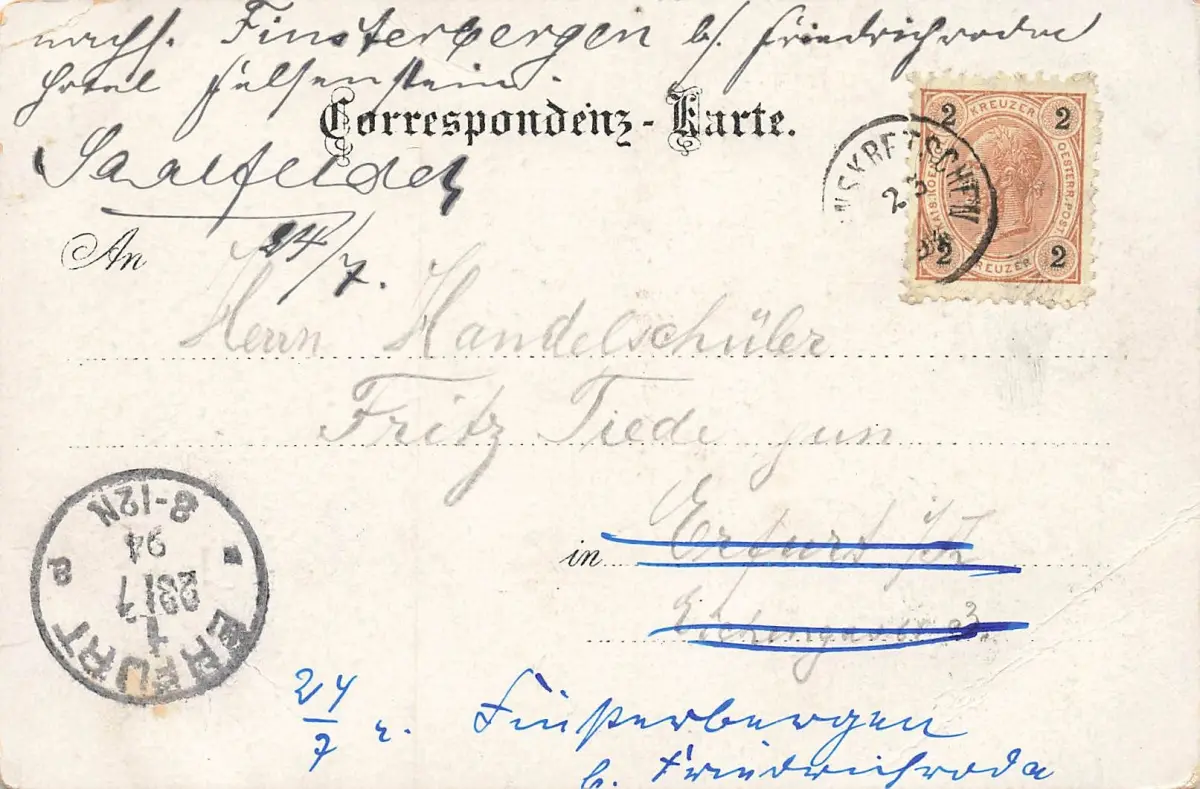 nachs. Finsterbergen b/. Friedrichroda
Hotel Felsenstein.
Correspondenz-Karte.
Saalfelder
24/7.
An
2 KREUZER 2
KAIS. KOEN. OESTERR. POST
2 KREUZER 2
23
Herrn Handelschüler
Fritz Tiede jun
in Erfurt i/T
8-12N
94
23/7
1
ERFURT
24/7 r. Finsterbergen
b. Friedrichroda